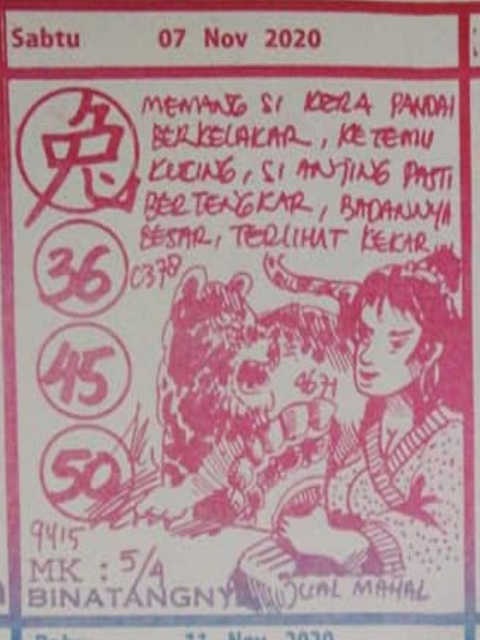 Sabtu 07 Nov 2020
兔
MEMANG SI KERA PANDAI
BERKELAKAR, KETEMU
KUCING, SI ANJING PASTI
BERTENGKAR, BADANNYA
BESAR, TERLIHAT KEKAR
36
C378
45
9671
50
9415
MK : 5/4
BINATANGNYA JUAL MAHAL
11 Nov 2020